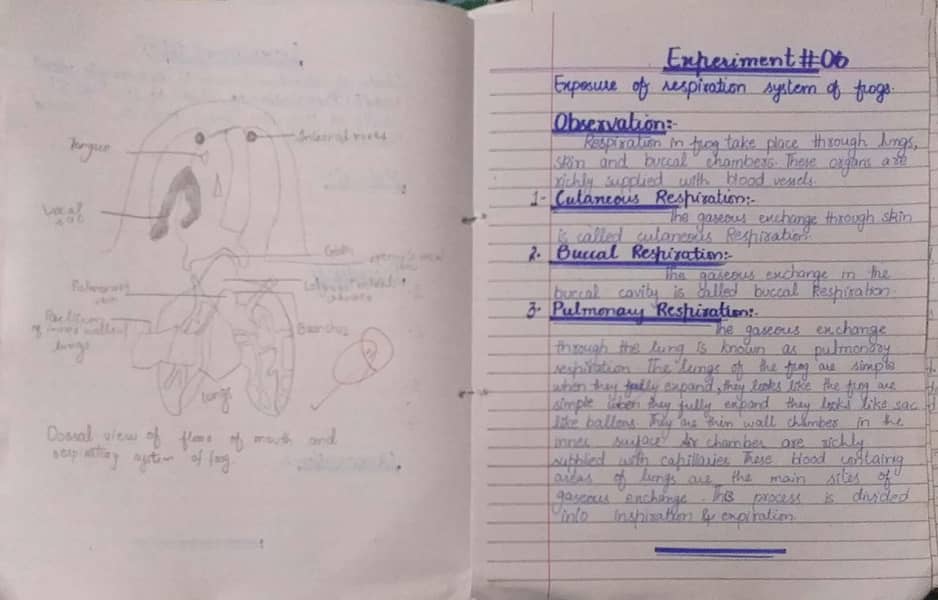 Tongue
Internal nares
Vocal
sac
Glottis
Pulmonary
Bronchus
lungs
lungs
Dorsal view of floor of mouth and
respiratory system of frog
Experiment #06
Exposure of respiration system of frogs.
Observation:-
Respiration in frog take place through lungs,
skin and buccal chambers. These organs are
richly supplied with blood vessels.
1- Cutaneous Respiration:-
The gaseous exchange through skin
is called cutaneous Respiration.
2. Buccal Respiration:-
The gaseous exchange in the
buccal cavity is called buccal Respiration.
3- Pulmonary Respiration:-
The gaseous exchange
through the lung is known as pulmonary
respiration. The lungs of the frog are simple
when they fully expand, they looks like the frog are
simple when they fully expand they looks like sac
like ballons. They are thin wall chamber in the
inner surface air chamber are richly
supplied with capillaries These blood containg
areas of lungs are the main sites of
gaseous enchange. This process is divided
into inspiration & expiration.